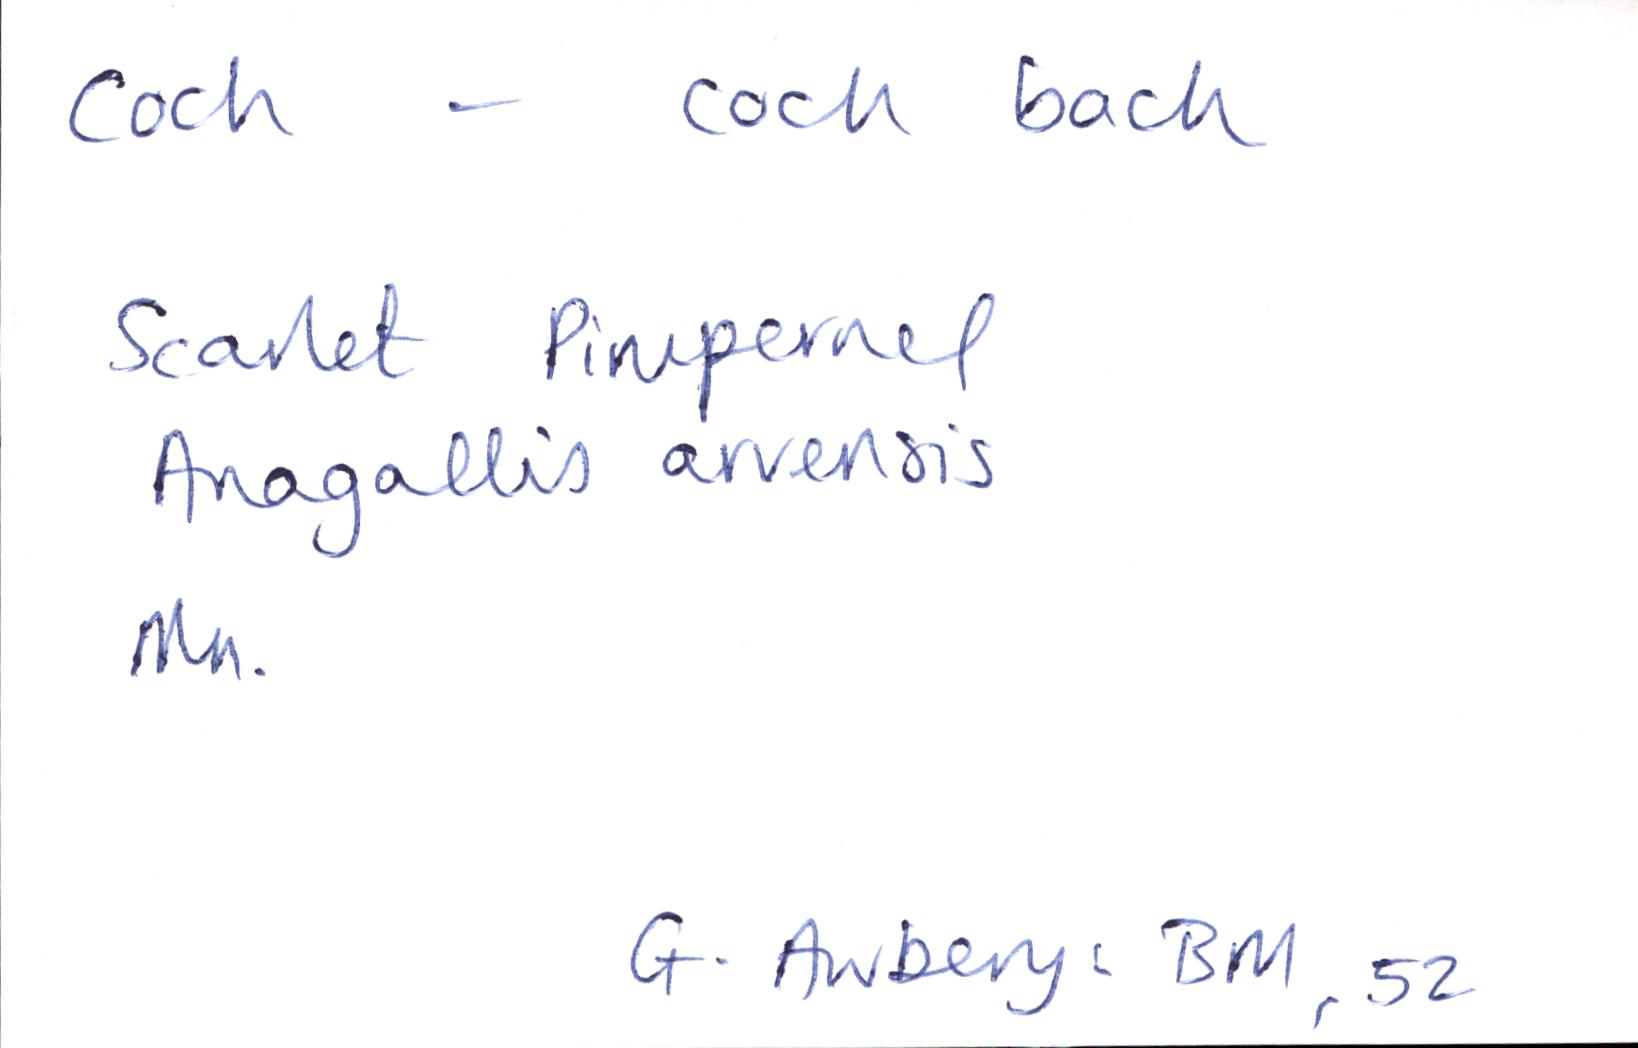 Coch - coch bach
Scarlet Pimpernel
Anagallis arvensis
Mn.
G. Awbery: BM, 52